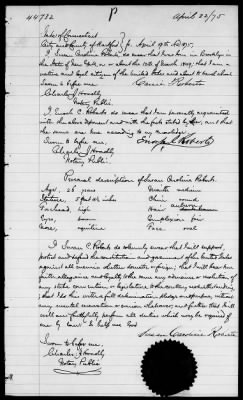 44732 P April 22/75
State of Connecticut
City and County of Hartford } ss. April 19th AD 1875.
I Susan Caroline Roberts, do swear that I was born in Brooklyn in
the State of New York, on or about the 13th of March 1849; that I am a
native and loyal citizen of the United States and about to travel abroad
Sworn to before me Carrie Roberts
Charles J Hoadly
Notary Public.
I, Enoch C. Roberts do swear that I am personally acquainted
with the above and with the facts stated by her, and that
the same are true according to my knowledge.
Sworn to before me, Enoch C Roberts
Charles J Hoadly
Notary Public
Personal description of Susan Caroline Roberts.
Age, 26 years Mouth medium
Stature, 5 feet inches Chin round
Forehead, high Hair auburn
Eyes, brown Complexion fair
Nose, aquiline Face oval
I Susan C. Roberts do solemnly swear that I will support,
protect and defend the constitution and government of the United States
against all enemies whether domestic or foreign; that I will bear true
faith, allegiance, and loyalty to the same, any ordinance or resolution of
any state convention or legislature to the contrary notwithstanding;
that I do this with a full determination, pledge and purpose, without
any mental reservation or evasion whatever and further that I
will well and faithfully perform all duties which may be required of
me by law. So help me God
Susan Caroline Roberts
Sworn to before me.
Charles J Hoadly
Notary Public